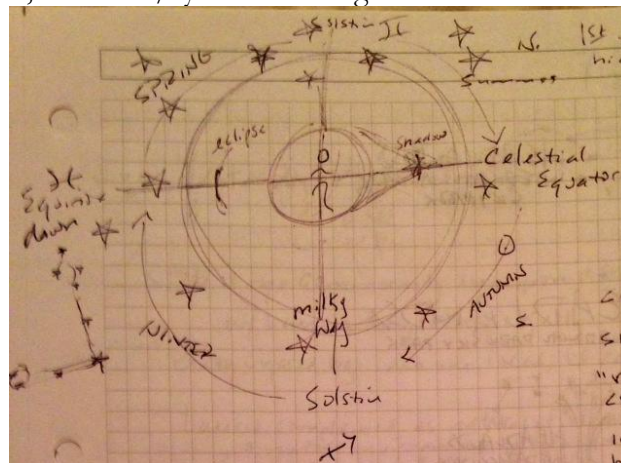 Solstice II
N.
1st
SPRING
Summer
eclipse
shadow
Celestial
Equator
Equinox
dawn
milky
way
AUTUMN
S.
WINTER
Solstice